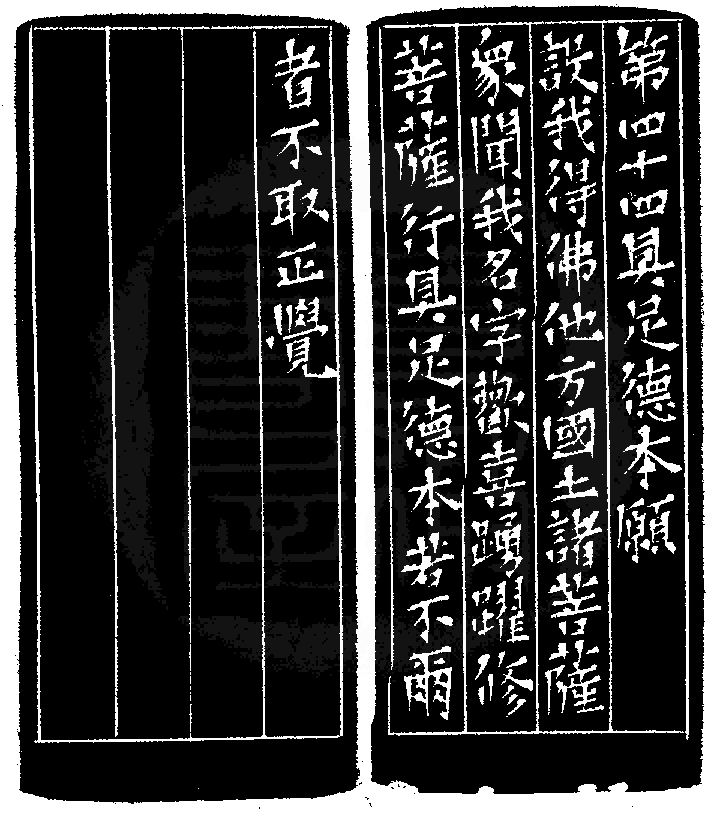 第四十四具足德本願
設我得佛他方國土諸菩薩
衆聞我名字歡喜踴躍修
菩薩行具足德本若不爾
者不取正覺